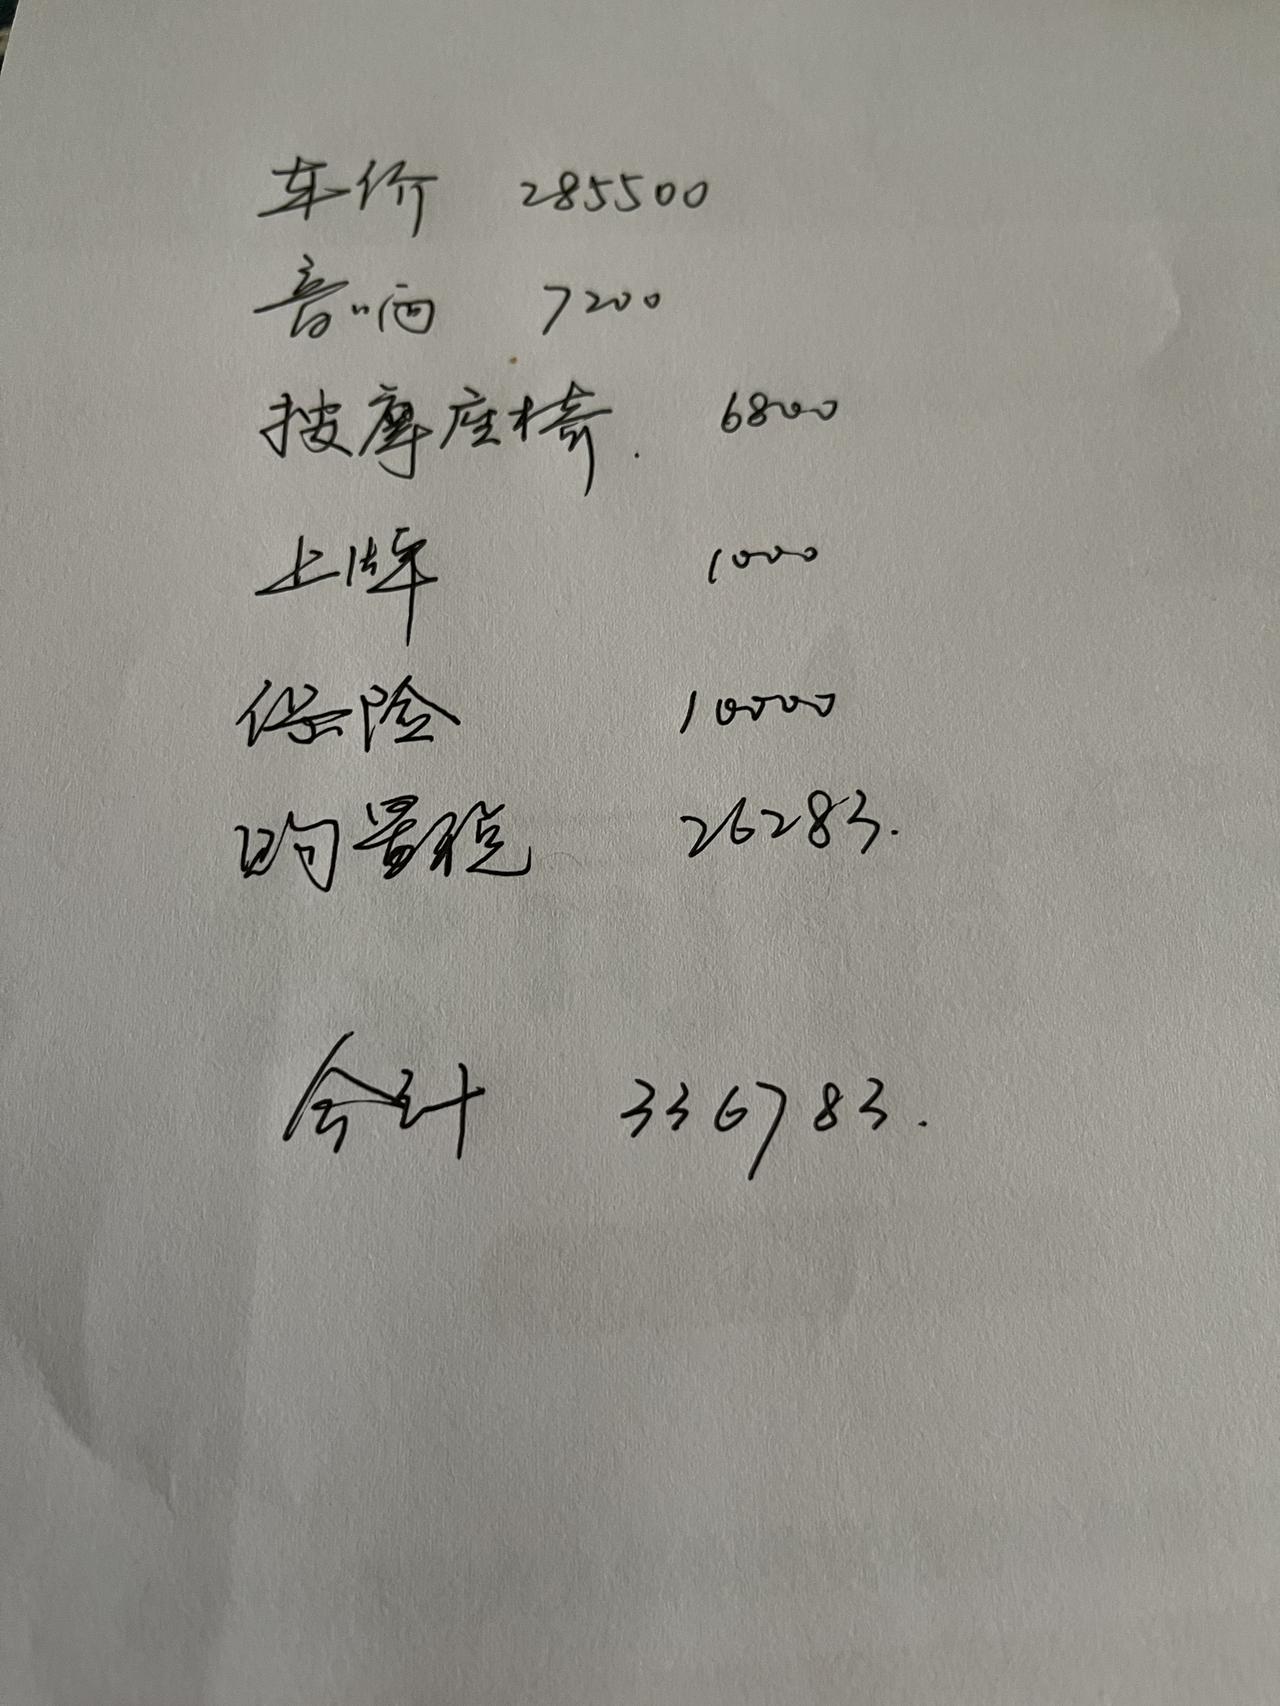 车价 285500
音响 7200
按摩座椅. 6800
上牌 1000
保险 10000
购置税 26283.
合计 336783.